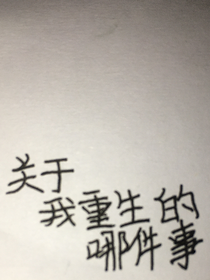 关于
我重生的
哪件事